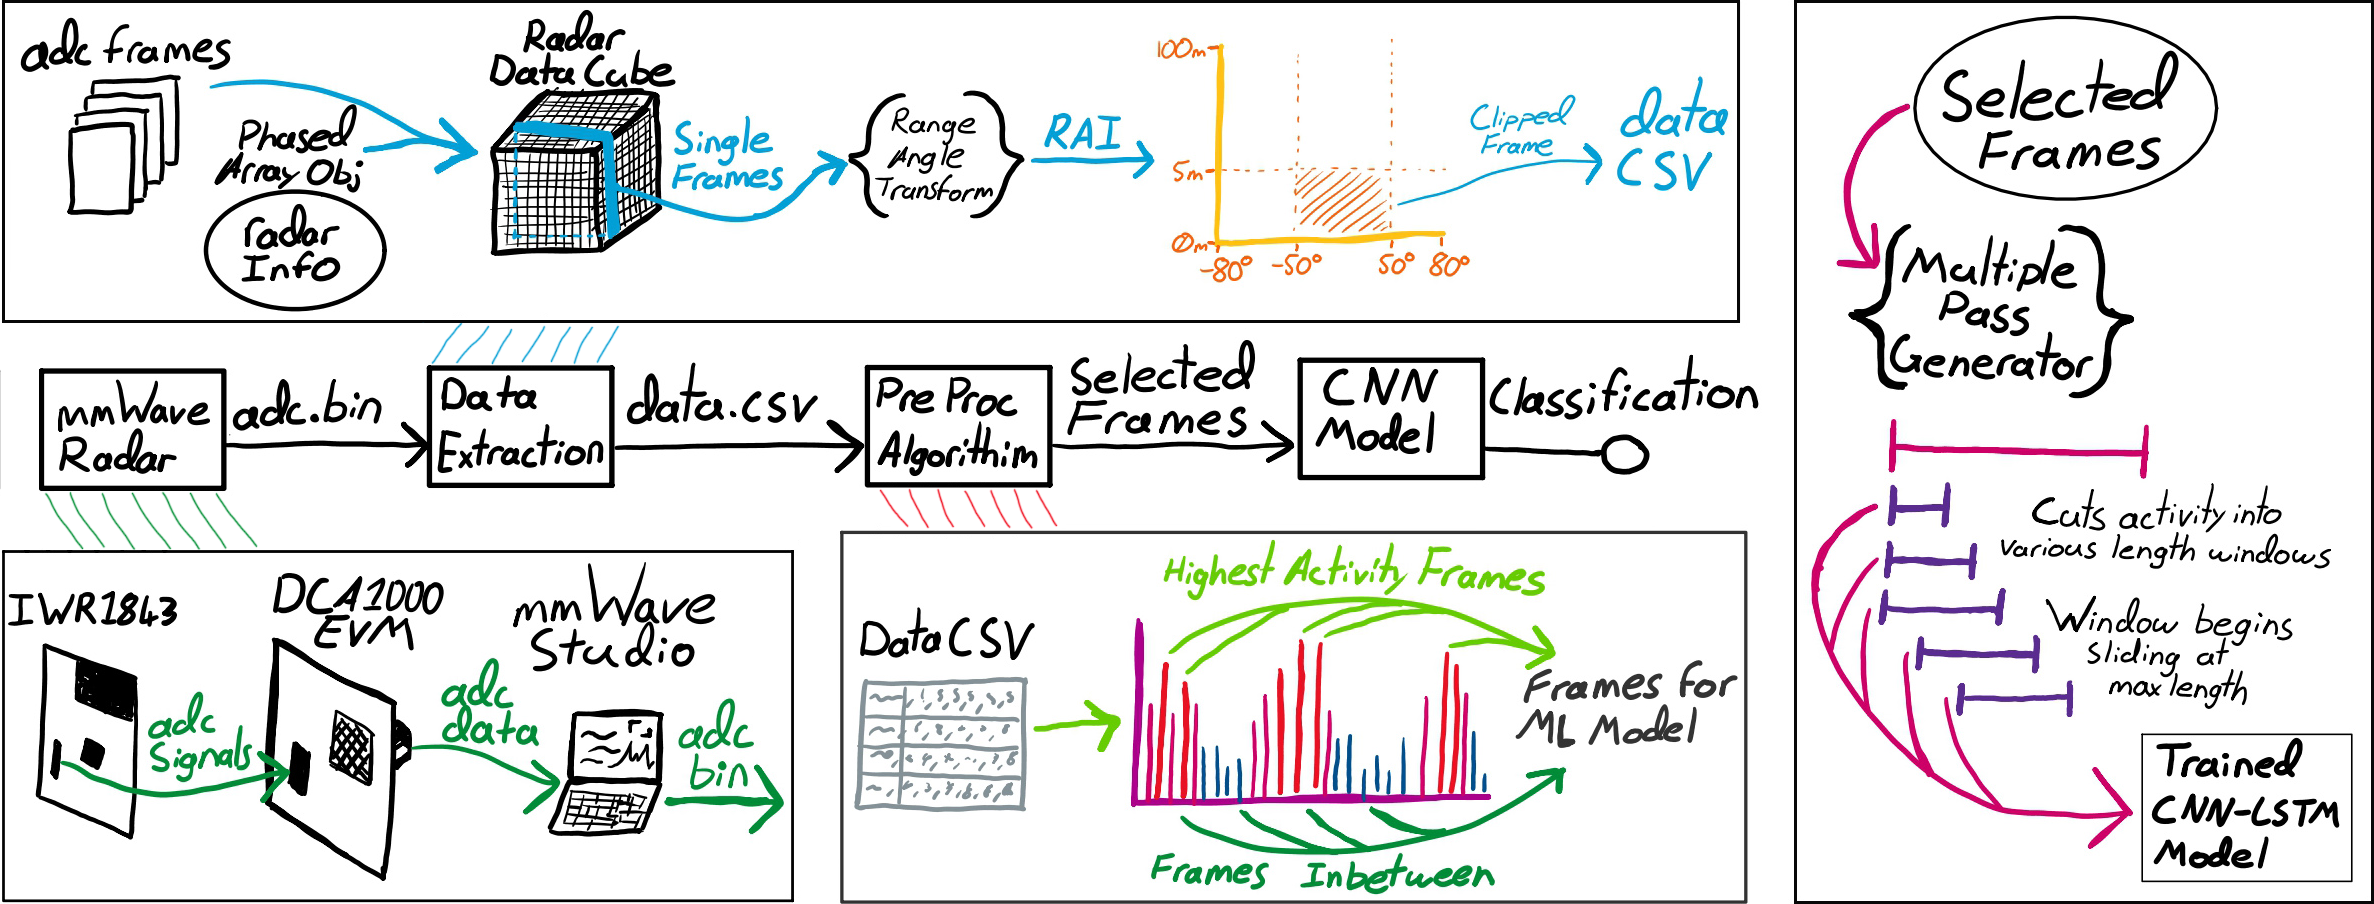 adc frames
Phased
Array Obj
radar
Info
Radar
Data Cube
Single
Frames
Range
Angle
Transform
RAI
100m
5m
0m
-80° -50° 50° 80°
Clipped
Frame
data
CSV
mmWave
Radar
adc.bin
Data
Extraction
data.csv
Pre Proc
Algorithim
Selected
Frames
CNN
Model
Classification
IWR1843
DCA1000
EVM
mmWave
Studio
adc
Signals
adc
data
adc
bin
Data CSV
Highest Activity Frames
Frames for
ML Model
Frames Inbetween
Selected
Frames
Multiple
Pass
Generator
Cuts activity into
various length windows
Window begins
sliding at
max length
Trained
CNN-LSTM
Model